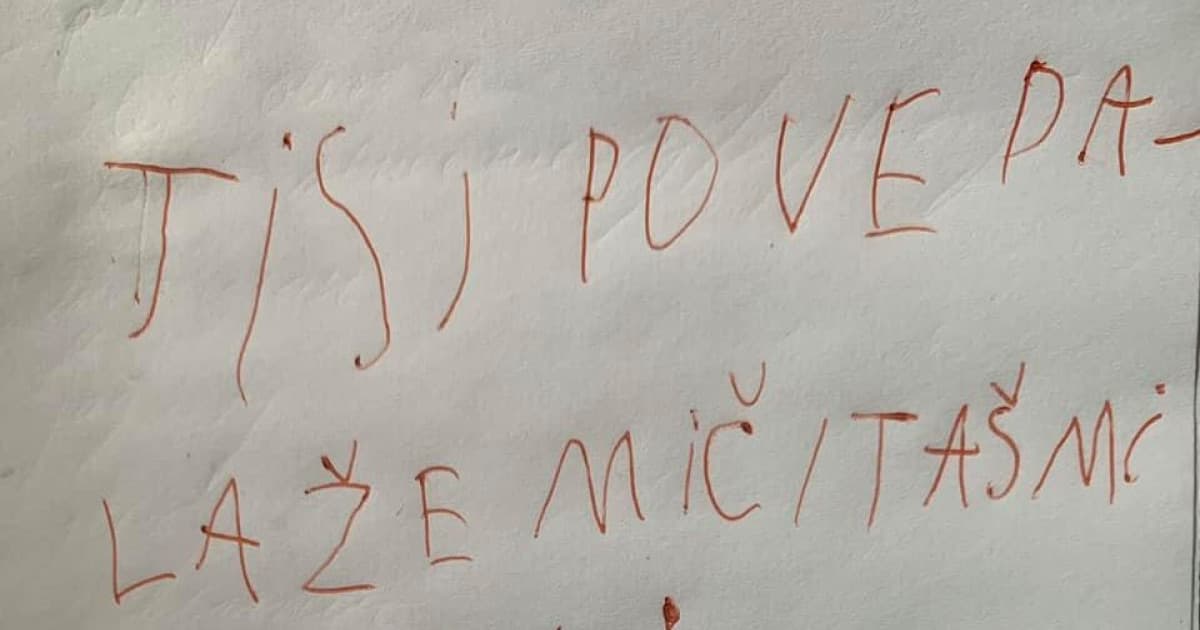 TiSi POVEDA-
LAŽE MiČITAŠMi